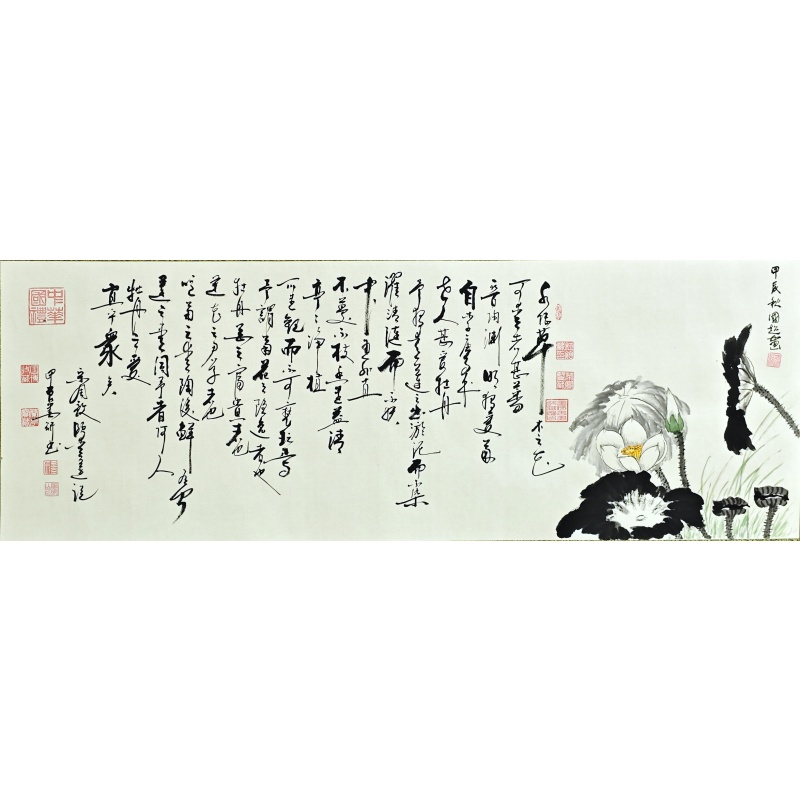 甲辰秋國
水陸草木之花
可愛者甚蕃
晉陶淵明獨愛菊
自李唐来
世人甚愛牡丹
予獨愛蓮之出淤泥而不染
濯清漣而不妖
中通外直
不蔓不枝香遠益清
亭亭淨植
可遠觀而不可褻玩焉
予謂菊花之隐逸者也
牡丹花之富貴者也
蓮花之君子者也
噫菊之愛陶後鮮有聞
蓮之愛同予者何人
牡丹之愛
宜乎眾矣
宋周敦頤愛蓮說
中華國禮